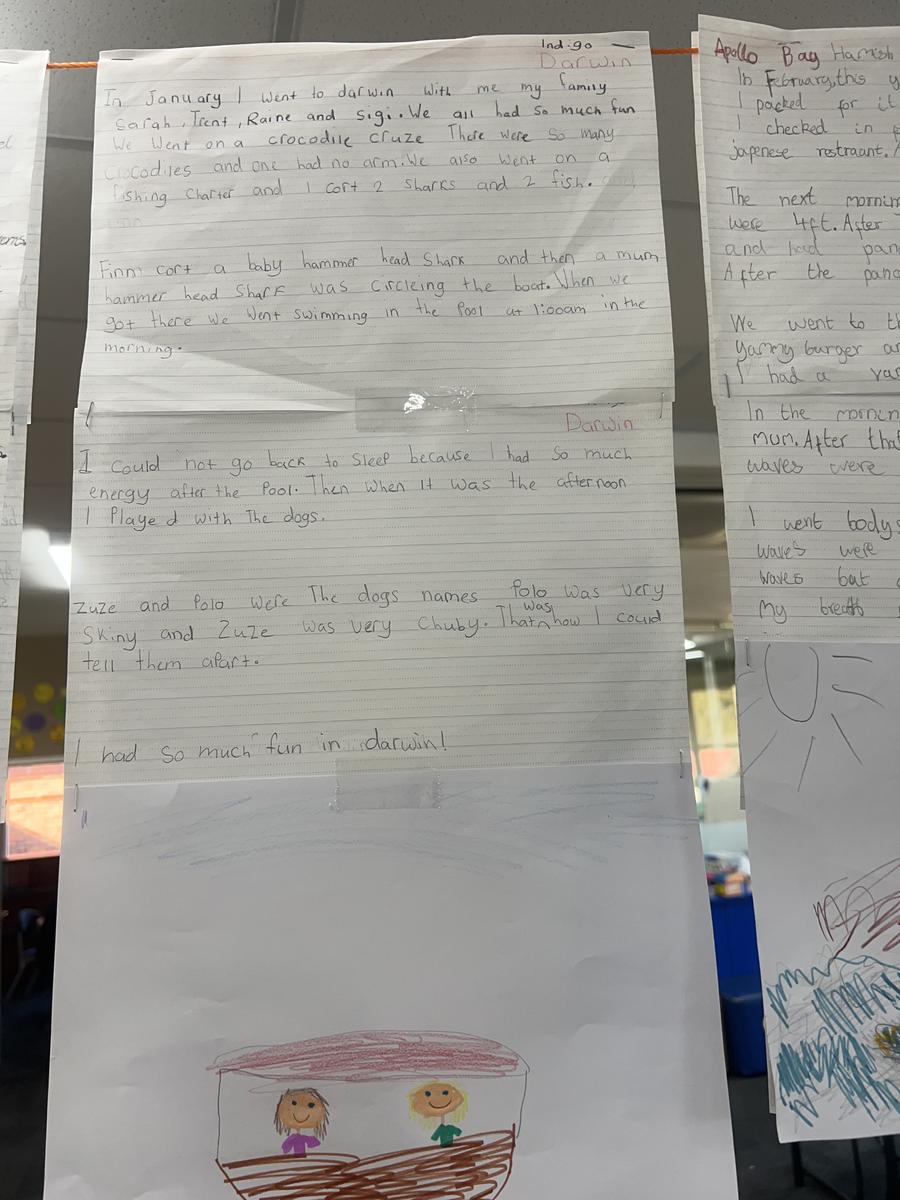 Indigo
Darwin
In January I went to darwin with me my family
Sarah, Trent, Raine and Sigi. We all had so much fun
We went on a crocodile cruze There were so many
crocodiles and one had no arm. We also went on a
fishing charter and I cort 2 sharks and 2 fish.
Finn cort a baby hammer head shark and then a mum
hammer head shark was circleing the boat. When we
got there we went swimming in the pool at 1:00am in the
morning.
Darwin
I could not go back to sleep because I had so much
energy after the pool. Then when it was the afternoon
I played with the dogs.
Zuze and Polo were The dogs names Polo was very
skiny and Zuze was very chuby. That was how I could
tell them apart.
I had so much fun in darwin!
Apollo Bay Hamish
In February, this y
I packed for it
I checked in
japenese restraunt.
The next mornin
were 4ft. After
and had pan
After the panc
We went to th
Yammy burger an
I had a van
In the mornin
mum. After that
waves were
I went bodys
waves were
waves but
my breath